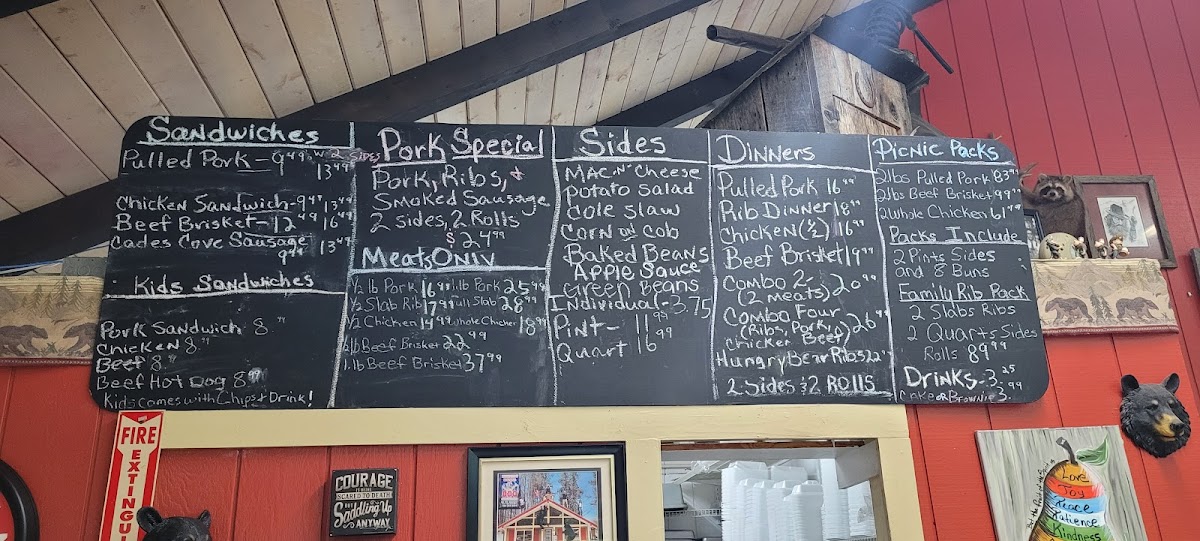 Sandwiches
Pulled Pork - 9.49 w 2 sides 13.49
Chicken Sandwich - 9.49 13.49
Beef Brisket - 12.49 16.49
Cades Cove Sausage
9.99 13.49
Kids Sandwiches
Pork Sandwich 8.99
Chicken 8.99
Beef 8.99
Beef Hot Dog 8.99
Kids comes with Chips + Drink!
Pork Special
Pork, Ribs, +
Smoked Sausage
2 sides, 2 Rolls
$24.99
Meats Only
½ lb Pork 16.99 1 lb Pork 25.99
½ Slab Rib 17.99 Full Slab 28.99
½ Chicken 14.99 Whole Chicken 18.99
½ lb Beef Brisket 22.99
1. lb Beef Brisket 37.99
Sides
Mac-N-Cheese
Potato Salad
Cole Slaw
Corn on Cob
Baked Beans
Apple Sauce
Green Beans
Individual - 3.75
Pint - 11.99
Quart 16.99
Dinners
Pulled Pork 16.99
Rib Dinner 18.99
Chicken (½) 16.99
Beef Brisket 19.99
Combo 2-
(2 meats) 20.99
Combo Four
(Ribs, Pork, 26.99
Chicken Beef)
Hungry Bear Ribs 22.99
2 Sides & 2 Rolls
Picnic Packs
2lbs Pulled Pork 83.99
2lbs Beef Brisket 99.99
2 Whole Chicken 61.99
Packs Include
2 Pints Sides
and 8 Buns
Family Rib Pack
2 Slabs Ribs
2 Quarts Sides
Rolls 89.99
Drinks - 3.25
Cake or Brownie 3.99
FIRE
EXTINGU
COURAGE
IS BEING
SCARED TO DEATH
BUT
Saddling Up
ANYWAY
Love
Joy
Peace
Patience
Kindness